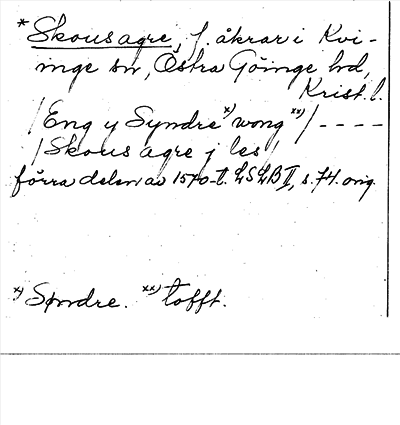 * Skousagre, f. åkrar i Kvi-
inge sn, Östra Göinge hd,
Krist. l.
/Eng y Syndre x) wong xx)/ - - - -
/Skous agre j les/
förra delen av 1570-t. LSLB II, s. 74. orig.
x) Spndre. xx) tofft.